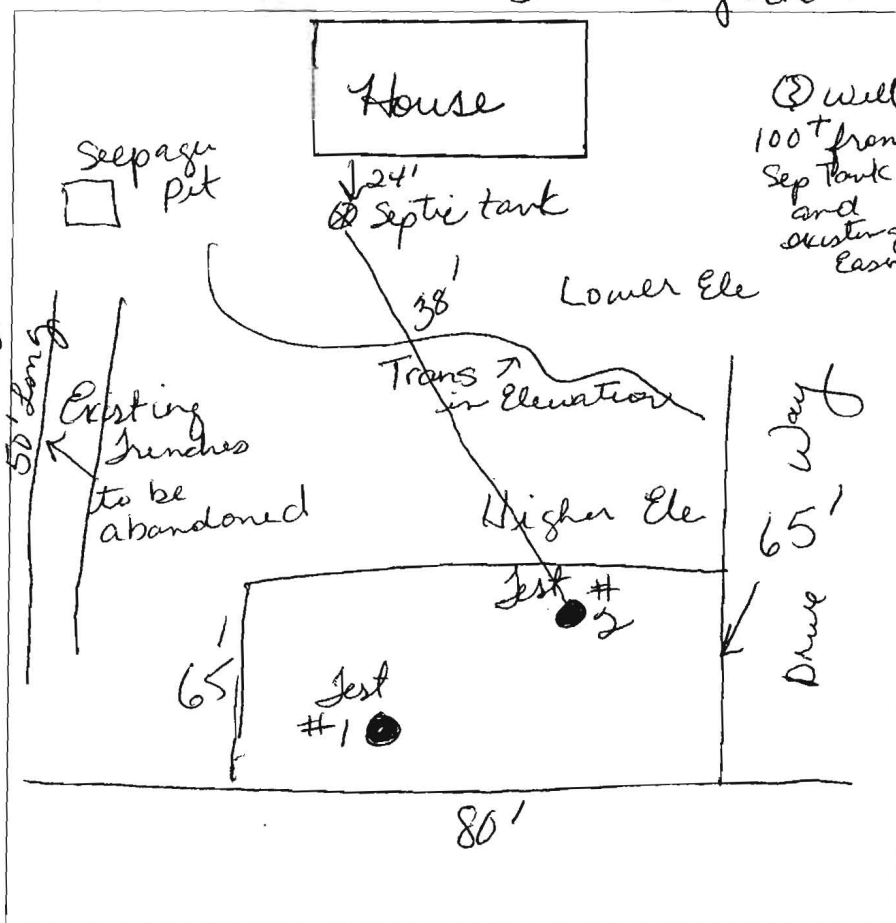 House
Seepage
Pit
24'
Septic tank
Well
100+ from
Sep Tank
and
existing
38'
Lower Ele
Trans
in Elevation
50' Long
Existing
Trenches
to be
abandoned
Higher Ele
Drive Way
65'
Test #
2
65'
Test
#1
80'